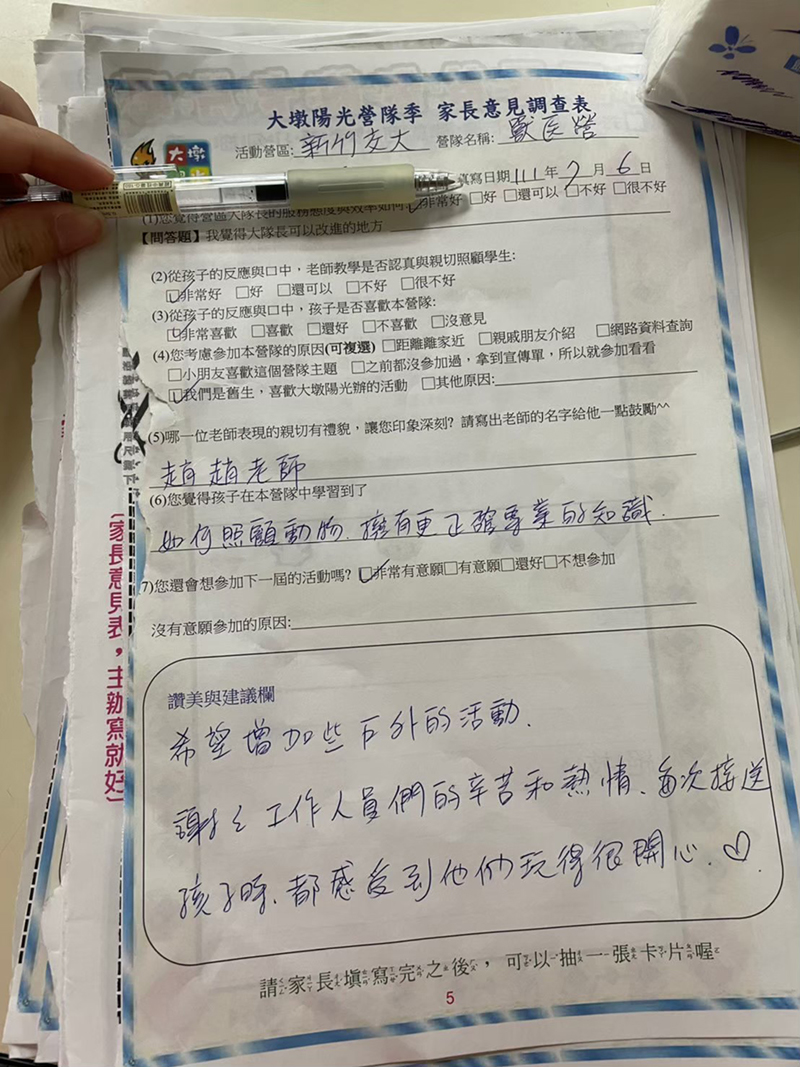 大墩陽光營隊季 家長意見調查表
活動營區: 新竹交大 營隊名稱: 獸医營
大墩
填寫日期111年7月6日
(1)您覺得營區大隊長的服務態度與效率如何: ☑非常好 □好 □還可以 □不好 □很不好
【問答題】我覺得大隊長可以改進的地方
(2)從孩子的反應與口中，老師教學是否認真與親切照顧學生:
☑非常好 □好 □還可以 □不好 □很不好
(3)從孩子的反應與口中，孩子是否喜歡本營隊:
☑非常喜歡 □喜歡 □還好 □不喜歡 □沒意見
(4)您考慮參加本營隊的原因(可複選) □距離離家近 □親戚朋友介紹 □網路資料查詢
□小朋友喜歡這個營隊主題 □之前都沒參加過，拿到宣傳單，所以就參加看看
☑我們是舊生，喜歡大墩陽光辦的活動 □其他原因:
(5)哪一位老師表現的親切有禮貌，讓您印象深刻? 請寫出老師的名字給他一點鼓勵^^
趙趙老師
(6)您覺得孩子在本營隊中學習到了
如何照顧動物、擁有更正確專業的知識.
7)您還會想參加下一屆的活動嗎? ☑非常有意願□有意願□還好□不想參加
沒有意願參加的原因:
讚美與建議欄
希望增加些戶外的活動.
謝々工作人員們的辛苦和熱情、每次接送
孩子時、都感受到他們玩得很開心.♡.
請家長填寫完之後，可以抽一張卡片喔
5
(家長意見表，主動寫就好)